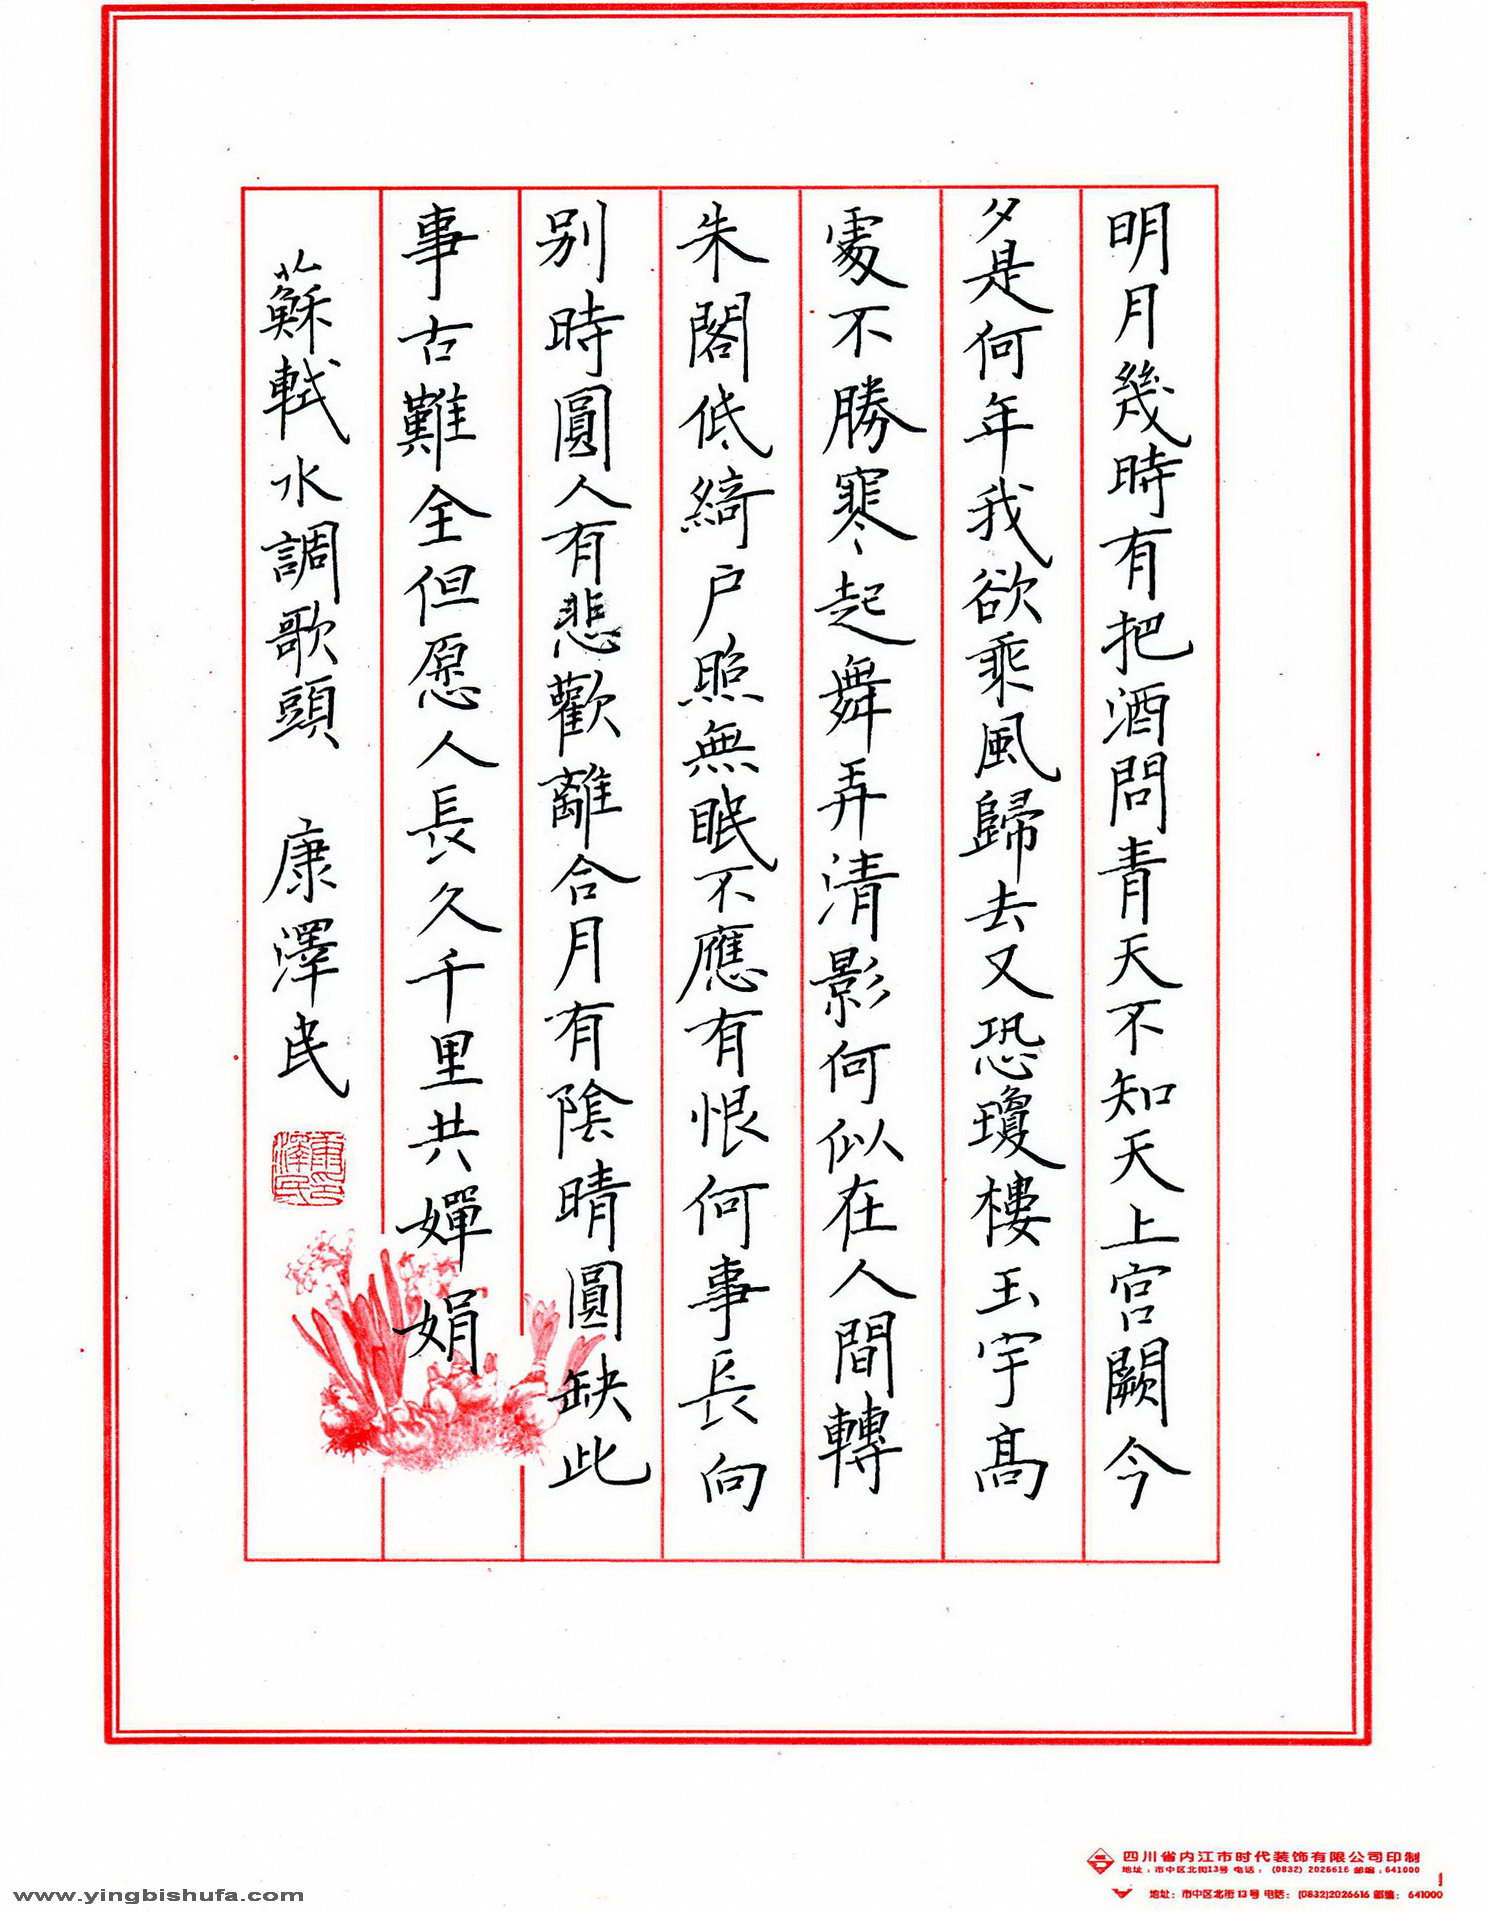 明月幾時有把酒問青天不知天上宮闕今
夕是何年我欲乘風歸去又恐瓊樓玉宇高
處不勝寒起舞弄清影何似在人間轉
朱閣低綺户照無眠不應有恨何事長向
别時圓人有悲歡離合月有陰晴圓缺此
事古難全但愿人長久千里共嬋娟
蘇軾水調歌頭 康澤民
康印澤民
四川省内江市时代装饰有限公司印制
地址：市中区北街13号 电话：(0832) 2026616 邮编：641000
地址：市中区北街13号 电话：(0832)2026616 邮编：641000
www.yingbishufa.com